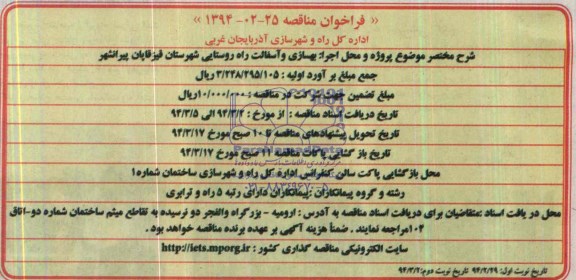 « فراخوان مناقصه ۲۵-۰۲-۱۳۹۴ »
اداره کل راه و شهرسازی آذربایجان غربی
شرح مختصر موضوع پروژه و محل اجرا: بهسازی وآسفالت راه روستایی شهرستان قیزقاپان پیرانشهر
جمع مبلغ بر آورد اولیه : ۳/۲۴۸/۲۹۵/۱۰۵ ریال
مبلغ تضمین جهت شرکت در مناقصه : ۱۰/۰۰۰/۰۰۰ریال
تاریخ دریافت اسناد مناقصه : از مورخ : ۹۴/۳/۲ الی ۹۴/۳/۵
تاریخ تحویل پیشنهادهای مناقصه تا ۱۰ صبح مورخ ۹۴/۳/۱۷
تاریخ باز گشایی پاکات مناقصه ۱۱ صبح مورخ ۹۴/۳/۱۷
محل بازگشایی پاکت سالن کنفرانس اداره کل راه و شهرسازی ساختمان شماره۱
رشته و گروه پیمانکاران :پیمانکاران دارای رتبه ۵ راه و ترابری
محل در یافت اسناد :متقاضیان برای دریافت اسناد مناقصه به آدرس : ارومیه - بزرگراه والفجر دو نرسیده به تقاطع میثم ساختمان شماره دو-اتاق
۱۰۲مراجعه نمایند . ضمناً هزینه آگهی بر عهده برنده مناقصه خواهد بود .
سایت الکترونیکی مناقصه گذاری کشور : http://iets.mporg.ir
تاریخ نوبت اول: ۹۴/۲/۲۹ تاریخ نوبت دوم:۹۴/۳/۲